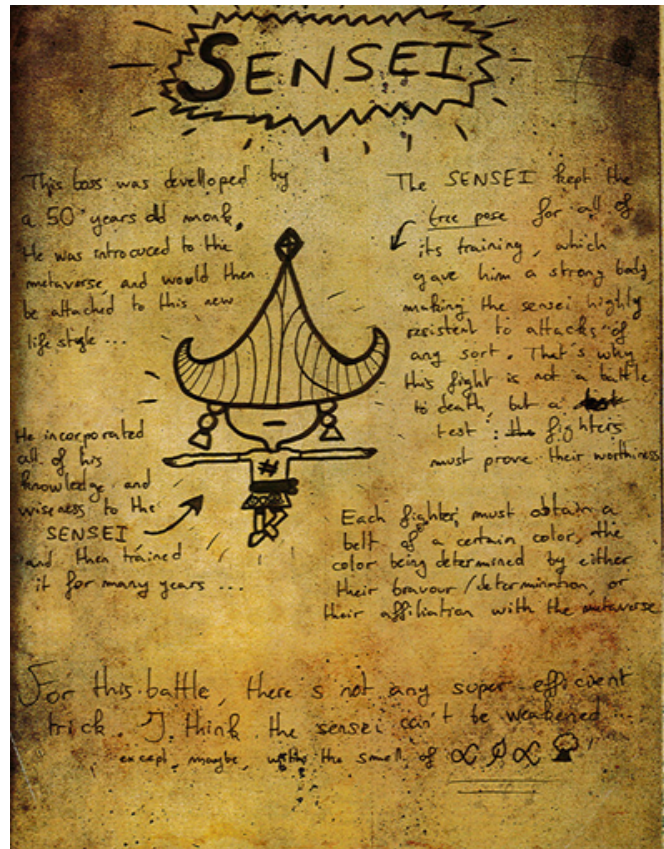 SENSEI
This boss was develloped by
a 50 years old monk,
He was introcuced to the
metaverse, and would then
be attached to this new
life style ...
He incorporated
all of his
knowledge and
wiseness to the
SENSEI
and then trained
it for many years ...
The SENSEI kept the
tree pose for all of
its training, which
gave him a strong body
making the sensei highly
resistent to attacks of
any sort. That's why
this fight is not a battle
to death, but a
test : the fighters
must prove their worthiness
Each fighter must obtain a
belt of a certain color, the
color being determined by either
their bravour / determination, or
their affiliation with the metaverse
For this battle, there s not any super efficient
trick. I think the sensei can't be weakened ...
except, maybe, with the smell of